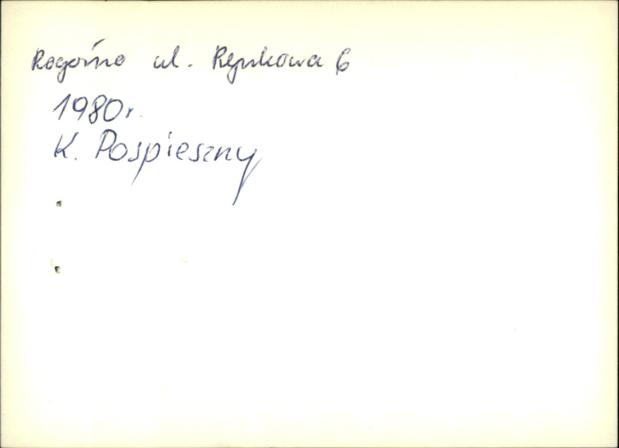 Rogoźno ul. Rynkowa 6
1980r.
K. Pospieszny